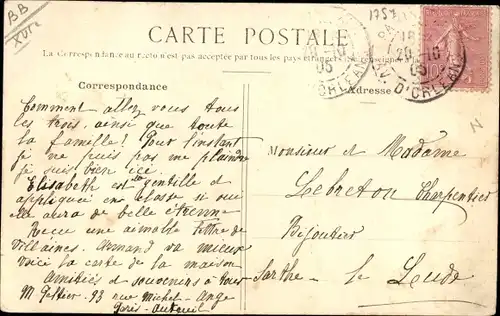 BB
XVIe
1757
CARTE POSTALE
La Correspondance au recto n'est pas acceptée par tous les pays étrangers
Correspondance
Adresse
20-10
05
AV. D'ORLEANS
Comment allez vous tous
les trois, ainsi que toute
la famille! Pour l'instant
je ne puis pas me plaindre
je suis bien ici.
Elisabeth est gentille et
appliquée en classe si oui
elle aura de belle étrenne
Recu une aimable lettre de
Villaines. Armand va mieux
voici la carte de la maison
Amitiés et souvenirs à tous
M Peltier. 93 rue Michel-Ange
Paris-Auteuil
Monsieur et Madame
Lebreton Charpentier
Bijoutier
Sarthe - le Lude
N